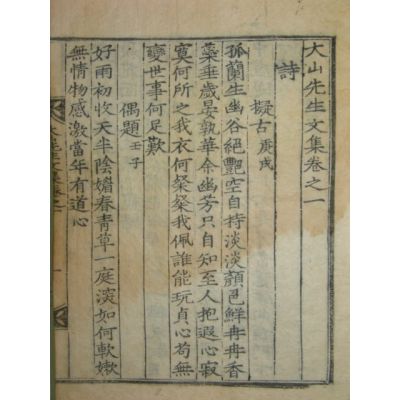 大山先生文集卷之一
詩
擬古 庚戌
孤蘭生幽谷絶艷空自持淡淡顔色鮮冉冉香
蘂垂歲晏孰華余幽芳只自知至人抱遐心寂
寞何所之我衣何粲粲我佩誰能玩貞心苟無
變世事何足歎
偶題 壬子
好雨初收天半陰媚春青草一庭深如何軟嫩
無情物感激當年有道心